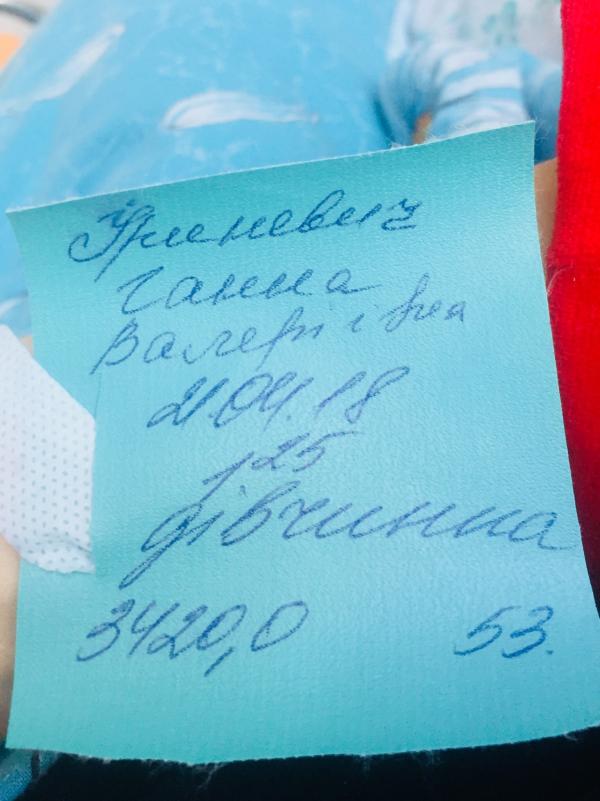 Гриневич
Ганна
Валеріївна
21.04.18
1 25
дівчинка
3420,0 53.